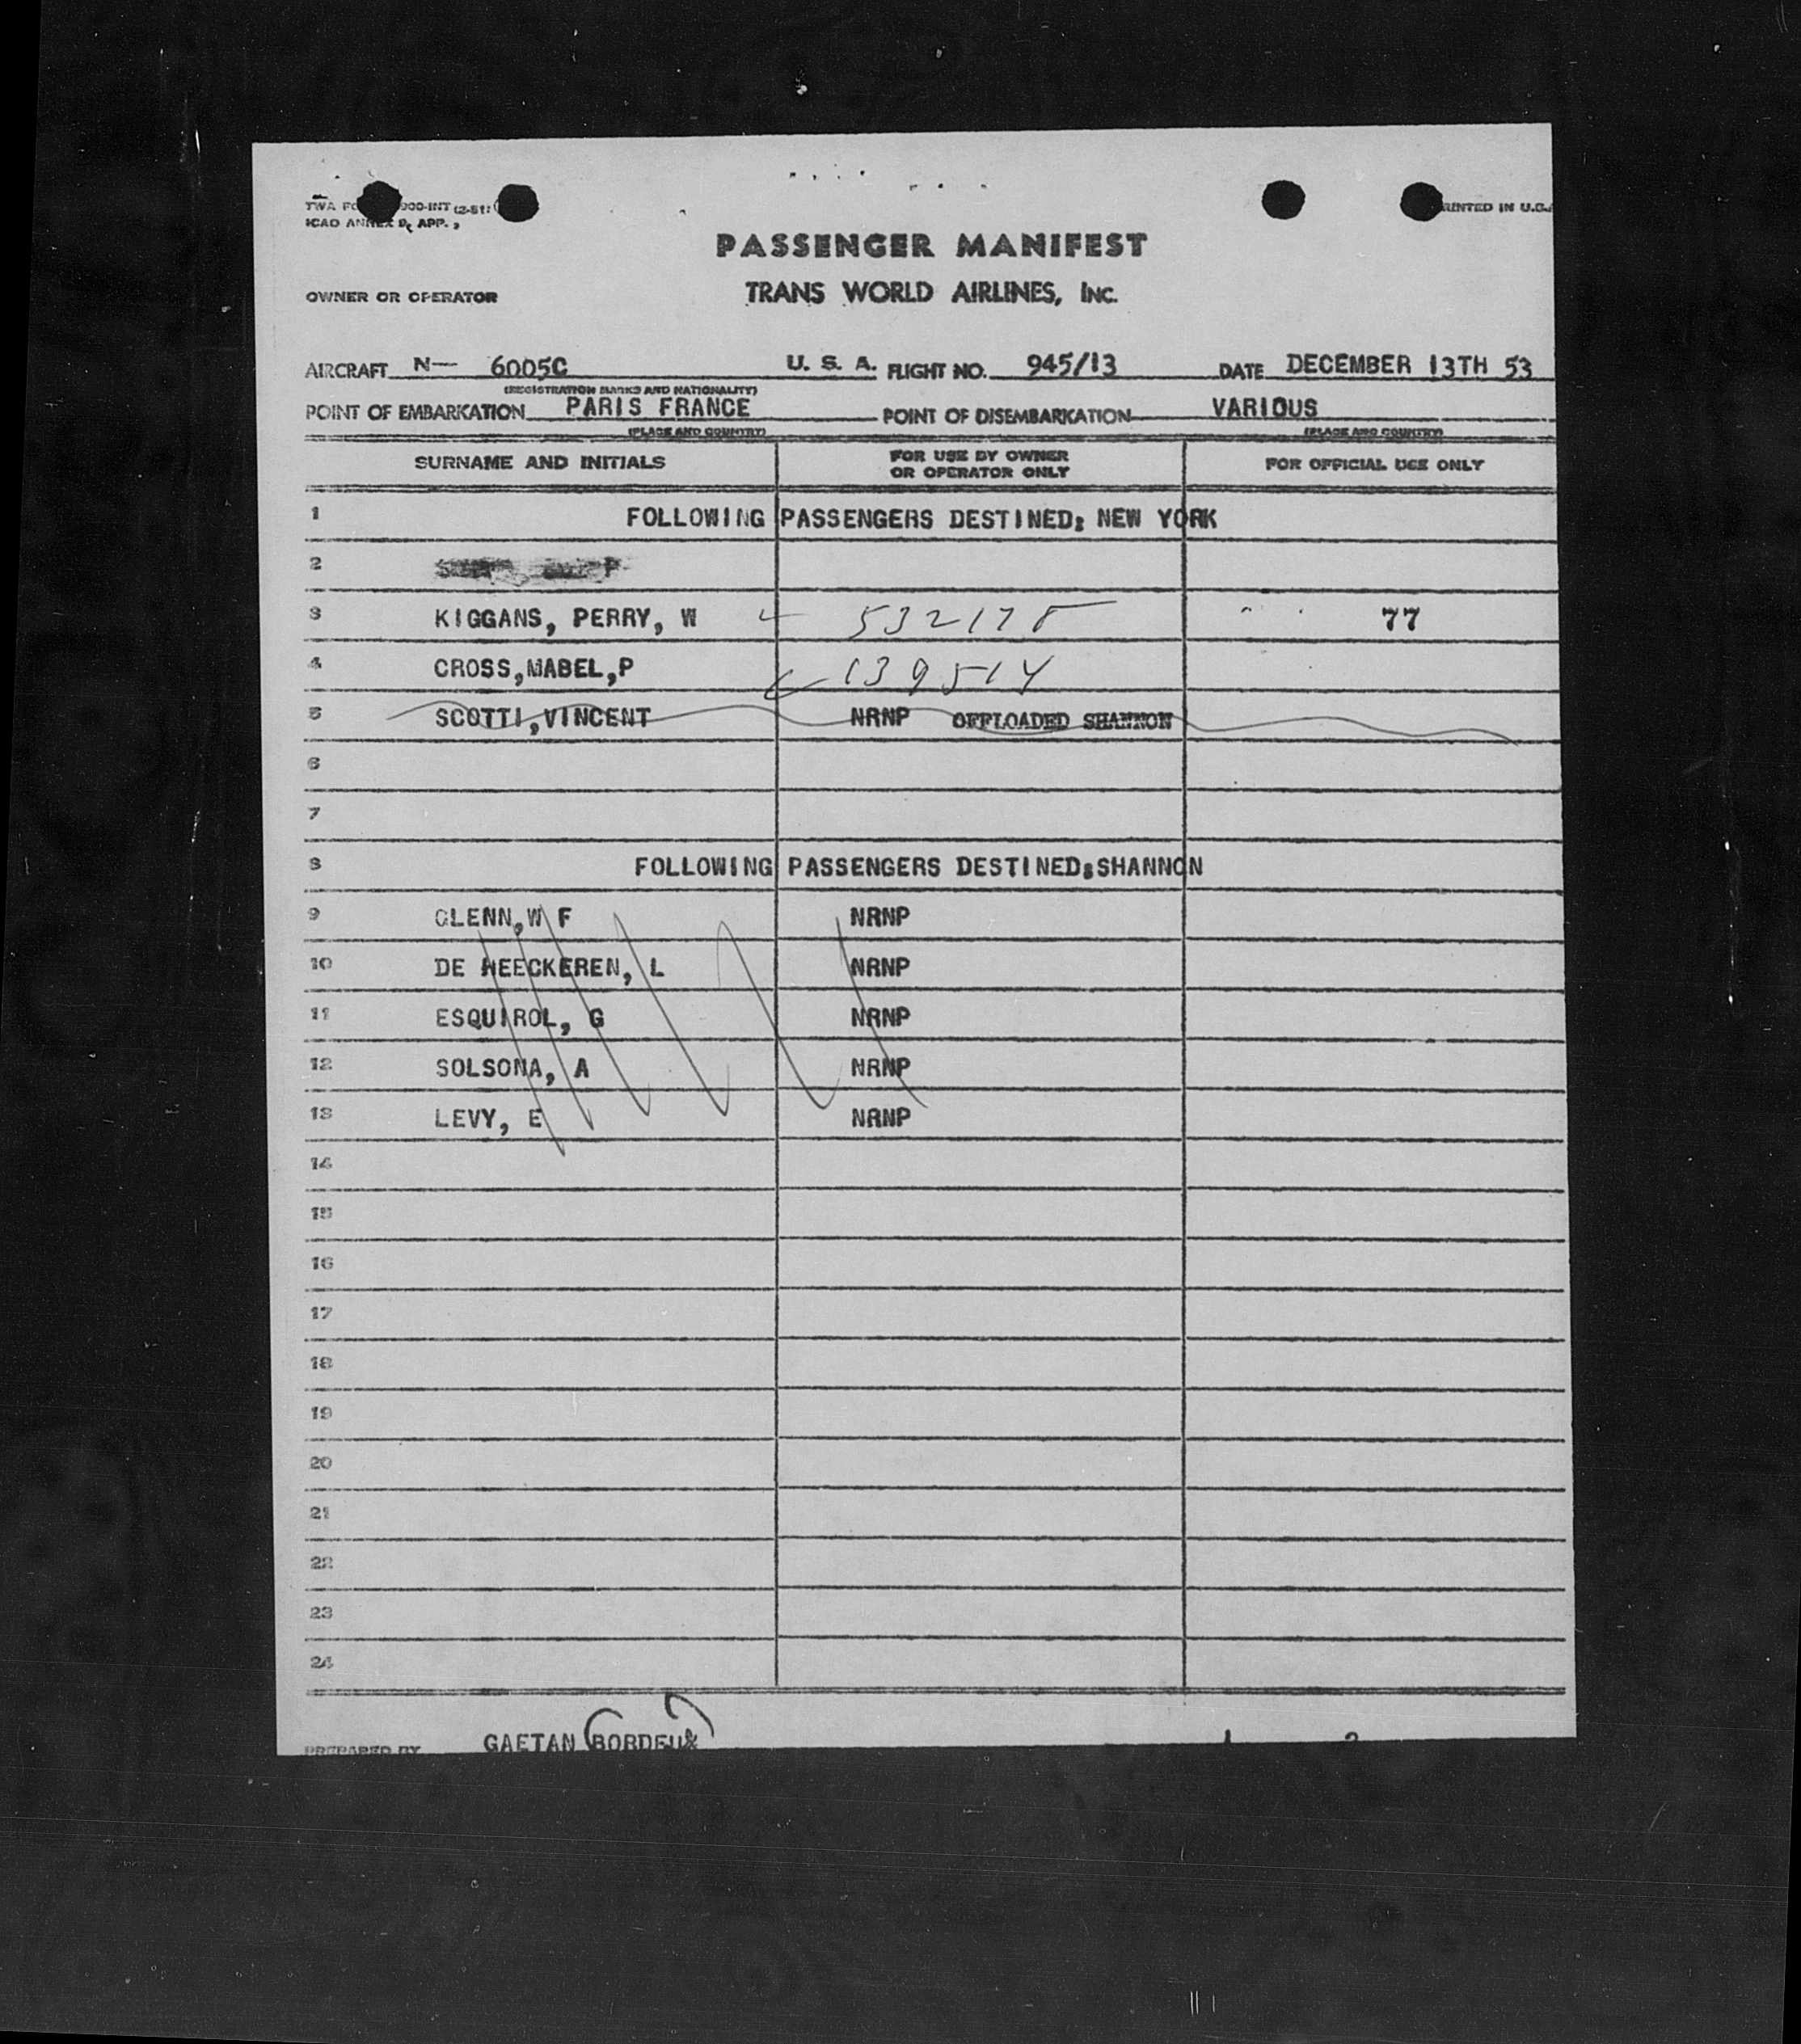 TWA FO 900-INT (2-51)
PRINTED IN U.S.
ICAO ANNEX 9, APP. 3
PASSENGER MANIFEST
OWNER OR OPERATOR TRANS WORLD AIRLINES, INC.
AIRCRAFT N— 6005C U. S. A. FLIGHT NO. 945/13 DATE DECEMBER 13TH 53
(REGISTRATION MARKS AND NATIONALITY)
POINT OF EMBARKATION PARIS FRANCE POINT OF DISEMBARKATION VARIOUS
(PLACE AND COUNTRY) (PLACE AND COUNTRY)
SURNAME AND INITIALS FOR USE BY OWNER OR OPERATOR ONLY FOR OFFICIAL USE ONLY
1 FOLLOWING PASSENGERS DESTINED: NEW YORK
2
3 KIGGANS, PERRY, W 532178 77
4 CROSS,MABEL,P 139514
5 SCOTTI,VINCENT NRNP OFFLOADED SHANNON
6
7
8 FOLLOWING PASSENGERS DESTINED:SHANNON
9 GLENN,W F NRNP
10 DE HEECKEREN, L NRNP
11 ESQUIROL, G NRNP
12 SOLSONA, A NRNP
13 LEVY, E NRNP
14
15
16
17
18
19
20
21
22
23
24
PREPARED BY GAETAN BORDEUX